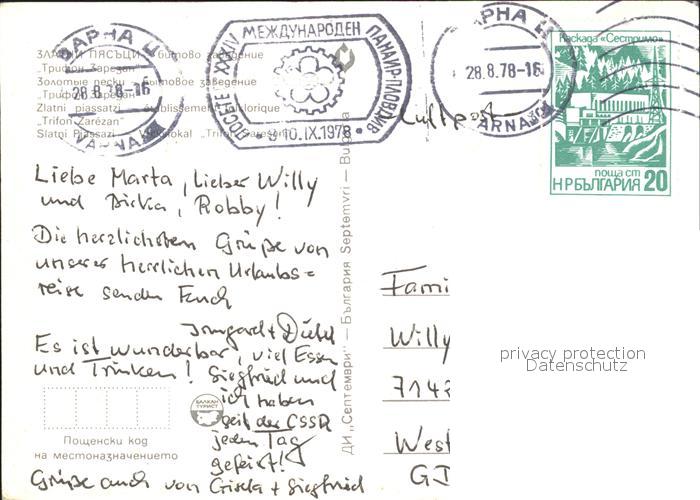 ЗЛАТНИ ПЯСЪЦИ — битово заведение
„Трифон Зарезан"
Золотые пески — бытовое заведение
„Трифон Зарезан"
Zlatni piassatzi — établissement folklorique
"Trifon Zarézan"
Slatni Pjassazi — Volkslokal „Trifon Saresan"
ВАРНА Ц
28.8.78-16
VARNA
ПОСЕТЕТЕ XXXIV МЕЖДУНАРОДЕН ПАНАИР-ПЛОВДИВ
10.IX.1978
ВАРНА Ц
28.8.78-16
VARNA
Каскада «Сестримо»
поща ст
НР БЪЛГАРИЯ 20
Luftpost
Liebe Marta, lieber Willy
und Dirka, Robby!
Die herzlichsten Grüße von
unserer herrlichen Urlaubs=
reise senden Euch
Irmgard +
Es ist wunderbar, viel Essen
und Trinken! Siegfried und
ich haben
seit der CSSR
jeden Tag
gefeiert!
Grüße auch von Gisela + Siegfried
БАЛКАН
ТУРИСТ
Пощенски код
на местоназначението
ДИ „Септември" — България Septemvri — Bulgaria
Fami
Willy
7142
West
GJ
privacy protection
Datenschutz